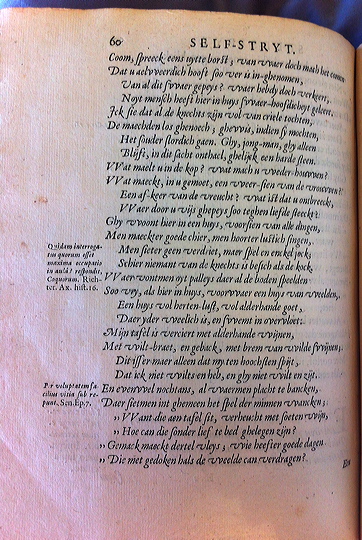 60 SELF-STRYT.
Coom, spreeck eens uytte borst; van vvaer doch mach het comen
Dat u aelvveerdich hooft soo ver is in-ghenomen,
Van al dit svvaer gepeys? vvaer hebdy doch verkeert,
Noyt mensch heeft hier in huys svvaer-hoofdicheyt geleert.
Ick sie dat al de knechts zijn vol van criele tochten,
De maechden los ghenoech; ghevvis, indien sy mochten,
Het souder slordich gaen. Ghy, jong-man, ghy alleen
Blijft, in dit sacht onthael, ghelijck een harde steen.
VVat maelt u in de kop? vvat mach u vveder-houvven?
VVat maeckt, in u gemoet, een vveer-sien van de vrouvven?
Een af-keer van de vreucht? vvat ist dat u ontbreeckt,
VVaer door u vijs ghepeys soo teghen liefde steeckt?
Ghy vvoont hier in een huys, voorsien van alle dingen,
Men maeckter goede chier, men hoorter lustich singen,
Men sieter geen verdriet, maer spel en enckel jock,
Schier niemant van de knechts is besich als de kock.
Quidam interroga-
tus quorum esset
maxima occupatio
in aula? respondit,
Coquorum. Rich-
ter. Ax. hist. 16.
VVaer vvontmen oyt palleys daer al de boden speelden
Soo vry, als hier in huys, voorvvaer een huys van vveelden,
Een huys vol herten-lust, vol alderhande goet,
Daer yder vveelich is, en svvemt in overvloet.
Mijn tafel is verciert met alderhande vvijnen,
Met vvilt-braet, en geback, met brem van vvilde svvijnen;
Dit isser maer alleen dat my ten hoochsten spijt,
Dat ick niet vvilts en heb, en ghy niet vvilt en zijt.
Per voluptatem fa-
cilius vitia sub re-
punt. Sen. Ep. 7.
En evenvvel nochtans, al vvaermen placht te bancken,
Daer sietmen int ghemeen het spel der minnen vvancken;
„ VVant die aen tafel sit, verheucht met soeten vvijn,
„ Hoe can die sonder lief te bed ghelegen zijn?
„ Gemack maeckt dertel vleys; vvie heefter goede dagen
„ Die met gedoken hals de vveelde can verdragen?